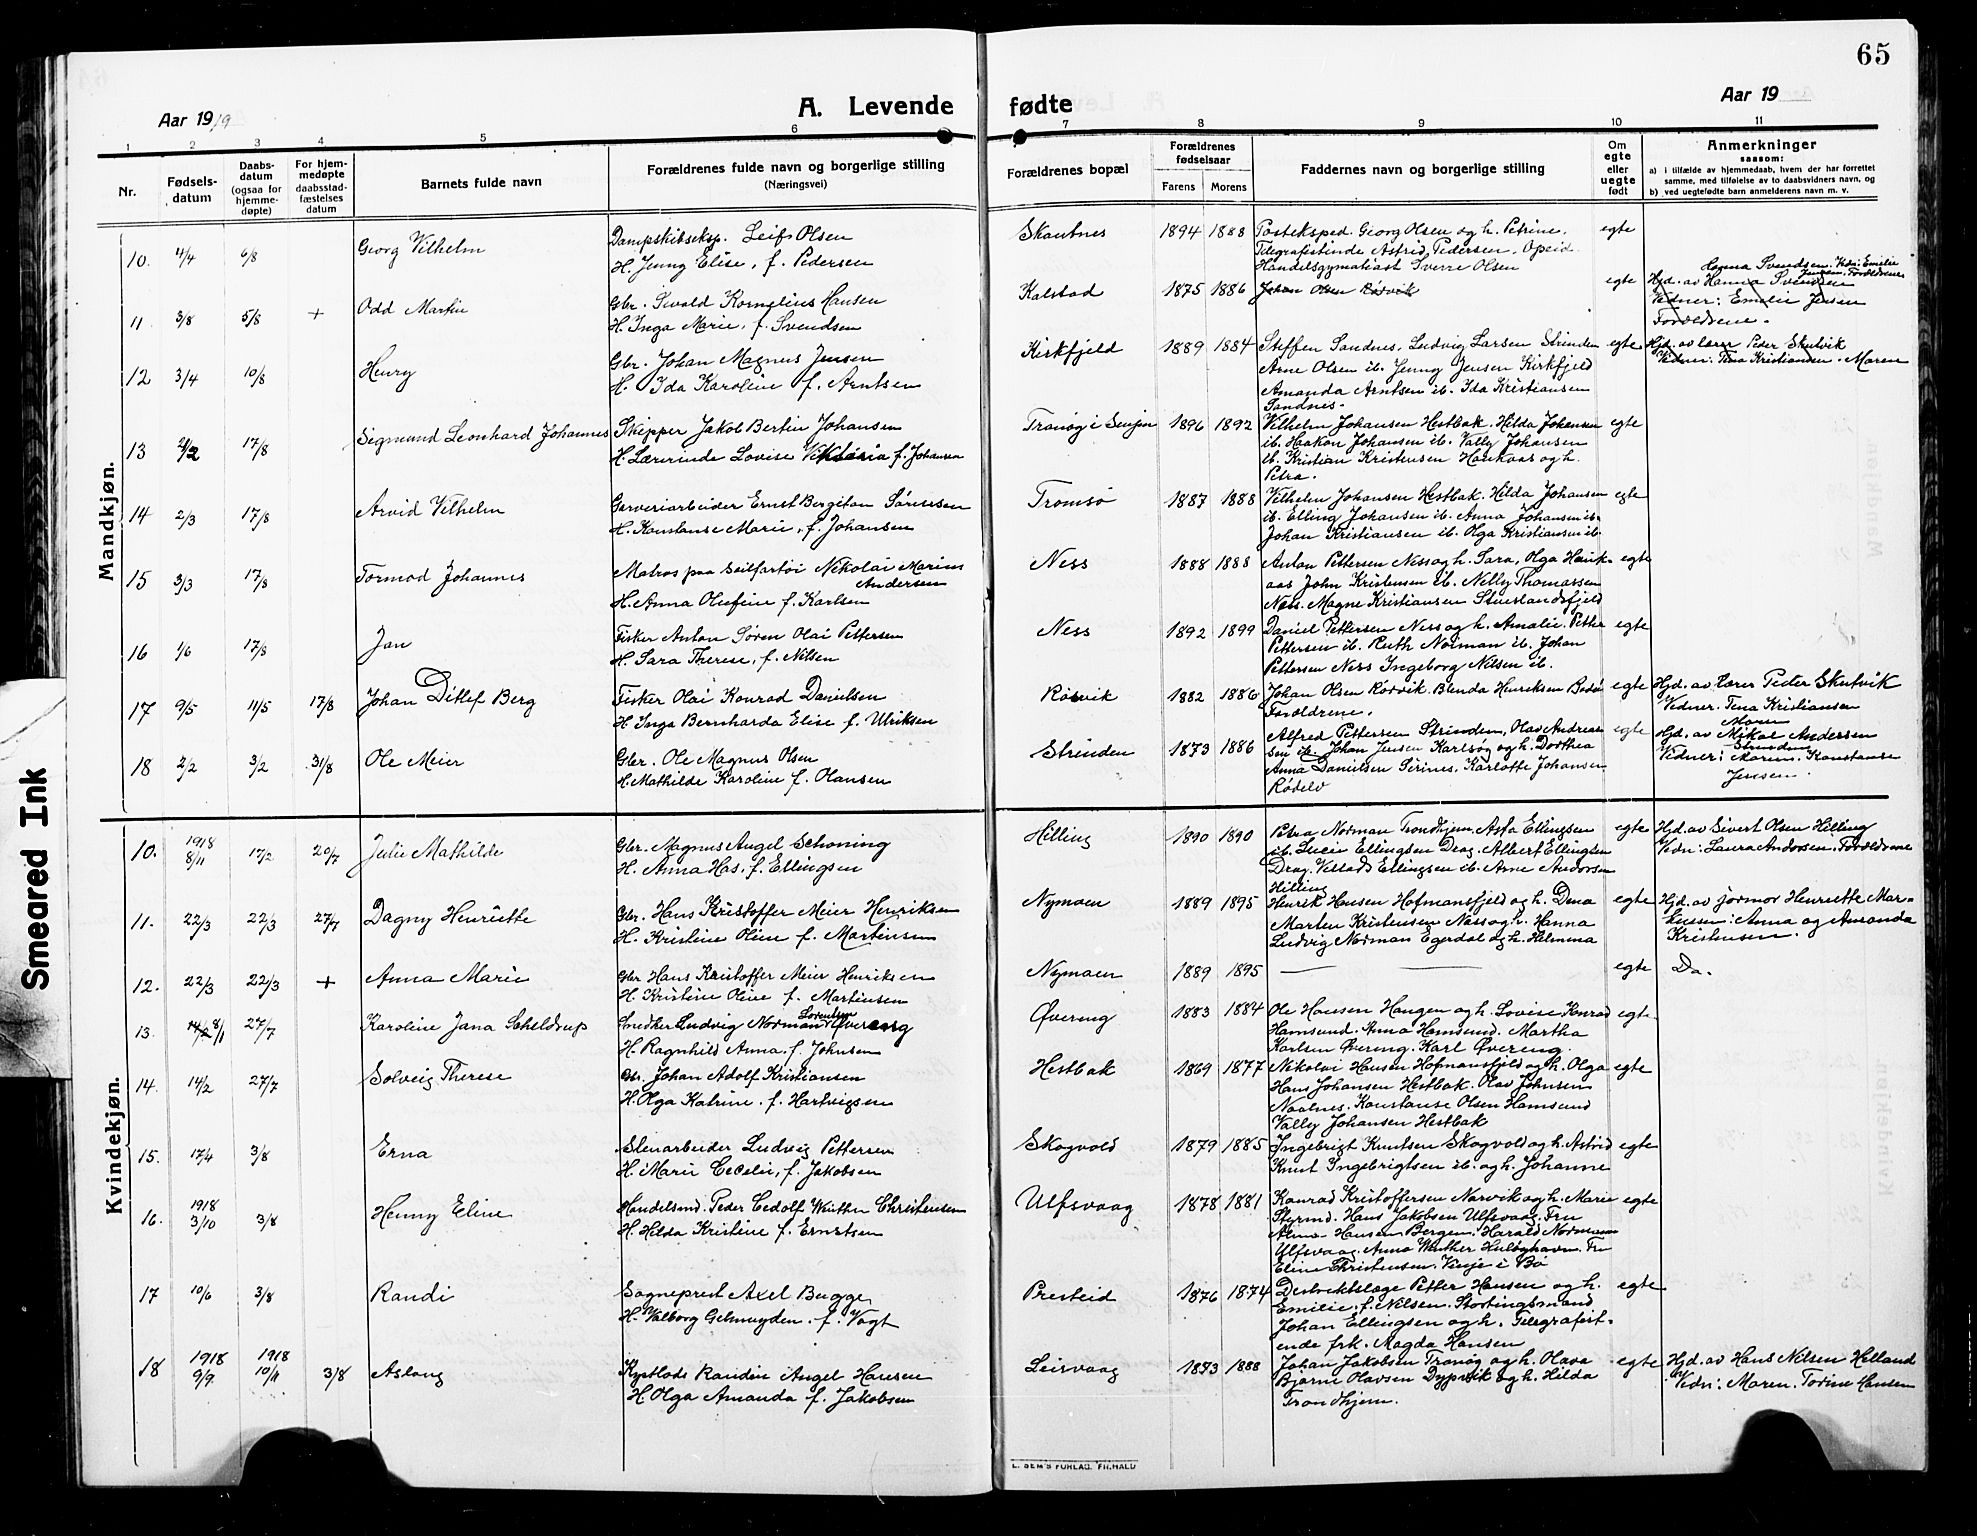 65
A. Levende fødte
Aar 1919
Aar 19
1 2 3 4 5 6 7 8 9 10 11
Nr.
Fødsels-
datum
Daabs-
datum
(ogsaa for
hjemme-
døpte)
For hjem-
medøpte
daabsstad-
fæstelses
datum
Barnets fulde navn
Forældrenes fulde navn og borgerlige stilling
(Næringsvei)
Forældrenes bopæl
Forældrenes
fødselsaar
Farens Morens
Faddernes navn og borgerlige stilling
Om
egte
eller
uegte
født
Anmerkninger
saasom:
a) i tilfælde av hjemmedaab, hvem der har forrettet
samme, med tilføielse av to daabsvidners navn, og
b) ved uegtefødte barn anmelderens navn m. v.
Mandkjøn.
10. 4/4 6/8 Georg Vilhelm
Dampskibseksp. Leif Olsen
H. Jenny Elise, f. Pedersen
Skutnes 1894 1888
Posteksped. Georg Olsen og h. Petrine,
Telegrafistinde Astrid Pedersen, Opeid
Handelsgymnasiast Sverre Olsen
egte
11 3/8 5/8 + Odd Martin
Gbr. Sivald Kornelius Hansen
H. Inga Marie, f. Svendsen
Kalstad 1875 1886
Johan Olsen Rørvik
egte
Hanna Svendsen. Vidn: Emelie
Jensen. Forældrene
Hjd. av Hanna Svendsen
Vidner: Emelie Jensen
Forældrene.
12 3/4 10/8 Henry
Gbr. Johan Magnus Jensen
H. Ida Karoline f. Arntsen
Kirkfjeld 1889 1884
Steffen Sandnes, Ludvig Larsen Strinden
Arne Olsen ib. Jenny Jensen Kirkfjeld
Amanda Arntsen ib. Ida Kristiansen
Sandnes.
egte
Hjd. av lærer Peder Skutvik
Vidner: Tina Kristiansen. Maren
13 2/2 17/8 Sigmund Leonhard Johannes
Skipper Jakob Bertin Johansen
H. Lærerinde Lovise Viktoria f. Johansen
Tranøy i Senjen 1896 1892
Vilhelm Johansen Hestbak. Hilda Johansen
ib. Haakon Johansen ib. Vally Johansen
ib. Kristian Kristensen Haukaas og h.
Petra.
egte
14 2/3 17/8 Arvid Vilhelm
Garveriarbeider Ernst Bergiton Sørensen
H. Konstanse Marie, f. Johansen
Tromsø 1887 1888
Vilhelm Johansen Hestbak. Hilda Johansen
ib. Elling Johansen ib. Anna Johansen ib.
Johan Kristiansen ib. Olga Kristiansen ib.
egte
15 3/3 17/8 Tormod Johannes
Matros paa seilfartøi Nikolai Marius
Andersen
H. Anna Olufine f. Karlsen
Ness 1888 1888
Anton Pettersen Ness og h. Sara, Olga Hauk-
aas John Kristensen ib. Nelly Thomassen
Ness. Magne Kristiansen Stuerlandsfjeld
egte
16 1/6 17/8 Jan
Fisker Anton Søren Olai Pettersen
H. Sara Therese, f. Nilsen
Ness 1892 1899
Daniel Pettersen Ness og h. Amalie. Petter
Pettersen ib. Ruth Norman ib. Johan
Pettersen Ness Ingeborg Nilsen ib.
egte
17 9/5 11/5 17/8 Johan Ditlef Berg
Fisker Olai Konrad Danielsen
H. Inga Bernharda Elise f. Ulriksen
Rørvik 1882 1886
Johan Olsen Rørvik. Blenda Henriksen Bodø
Forældrene.
egte
Hjd. av lærer Peder Skutvik
Vidner. Tina Kristiansen
Maren
18 2/2 3/2 31/8 Ole Meier
Gbr. Ole Magnus Olsen
H. Mathilde Karoline f. Olausen
Strinden 1873 1886
Alfred Pettersen Strinden, Olav Andreas-
sen ib. Johan Jensen Karlsøy og h. Dorthea
Anna Danielsen Sirines, Karlotte Johansen
Rødelv
egte
Hjd. av Mikal Andersen
Strinden
Vidner: Maren. Konstanse
Jensen.
Kvindekjøn.
10. 1918 8/11 17/2 20/7 Julie Mathilde
Gbr. Magnus Angel Schoning
H. Anna Has. f. Ellingsen
Hilling 1890 1890
Petra Norman Trondhjem. Asta Ellingsen
ib. Lucie Ellingsen Drag. Albert Ellingsen
Drag. Villads Ellingsen ib. Arne Andorsen
Hilling
egte
Hjd. av Sivert Olsen Hilling
Vidn: Laura Andorsen. Forældrene
11. 22/3 22/3 27/7 Dagny Henriette
Gbr. Hans Kristoffer Meier Henriksen
H. Kristine Oline f. Martinsen
Nymoen 1889 1895
Henrik Hansen Hofmansfjeld og h. Dina
Marten Kristensen Ness og h. Hanna
Ludvig Norman Egerdal og h. Helmina
egte
Hjd. av jormor Henriette Mar-
tinsen: Anna og Amanda
Kristensen.
12. 22/3 22/3 + Anna Marie
Gbr Hans Kristoffer Meier Henriksen
H. Kristine Oline f. Martinsen
Nymoen 1889 1895
egte
Do.
13. 14/2 8/1 27/7 Karoline Jana Scheldrup
Snedker Ludvig Norman Sørensen Øvereng
H. Ragnhild Anna. f. Johnsen
Øvereng 1883 1884
Ole Hansen Haugen og h. Lovise. Konrad
Hamsund. Anna Hamsund. Martha
Karlsen Øvereng. Karl Øvereng
egte
14. 14/2 27/7 Solveig Therese
Gbr. Johan Adolf Kristiansen
H. Olga Katrine. f. Hartvigsen
Hestbak 1869 1877
Nikolai Hansen Hofmansfjeld og h. Olga
Hans Johansen Hestbak. Olav Johnsen
Naalnes. Konstanse Olsen Hamsund
Vally Johansen Hestbak
egte
15. 17/4 3/8 Erna
Stenarbeider Ludvig Pettersen
H. Marie Cecelie, f. Jakobsen
Skogvold 1879 1885
Ingebrigt Knutsen Skogvold og h. Astrid
Knut Ingebrigtsen ib. og h. Johanne
egte
16. 1918 3/10 3/8 Henny Eline
Handelsmd. Peder Cedolf Winther Christensen
H. Hilda Kristine f. Ernstsen
Ulfsvaag 1878 1881
Konrad Kristoffersen Narvik og h. Marie
Styrmd. Hans Jakobsen Ulfsvaag. Fru
Alma Hansen Bergen. Harald Norman
Ulfsvaag. Anna Winther Huløyhavn. Fru
Eline Christensen. Vinje i Bø
egte
17 10/6 3/8 Randi
Sogneprest Axel Bugge
H. Valborg Gelmuyden. f. Vogt
Presteid 1876 1874
Destriktslæge Petter Hansen og h.
Emilie. f. Nilsen. Stortingsmand
Johan Ellingsen og h. Telegrafist-
inde frk. Magda Hansen
egte
18 1918 9/9 1918 10/11 3/8 Aslaug
Kystlods Randin Angel Hansen
H. Olga Amanda f. Jakobsen
Leirvaag 1873 1888
Johan Jakobsen Tranøy og h. Olava
Bjarne Olavsen Dypvik og h. Hilda
Trondhjem.
egte
Hjd. av Hans Nilsen Helland
Vidn: Maren. Torine Hansen
Smeared Ink
E. SEM'S FORLAG, FR.HALD